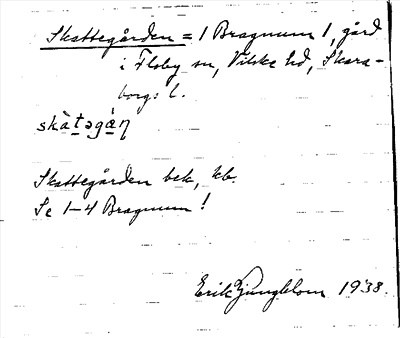 Skattegården = 1 Bragnum 1, gård
i Floby sn, Vilske hd, Skara-
borgs l.
skàtəgàn̥
Skattegården bek, kb.
Se 1-4 Bragnum!
Erik Ljungblom 1938.